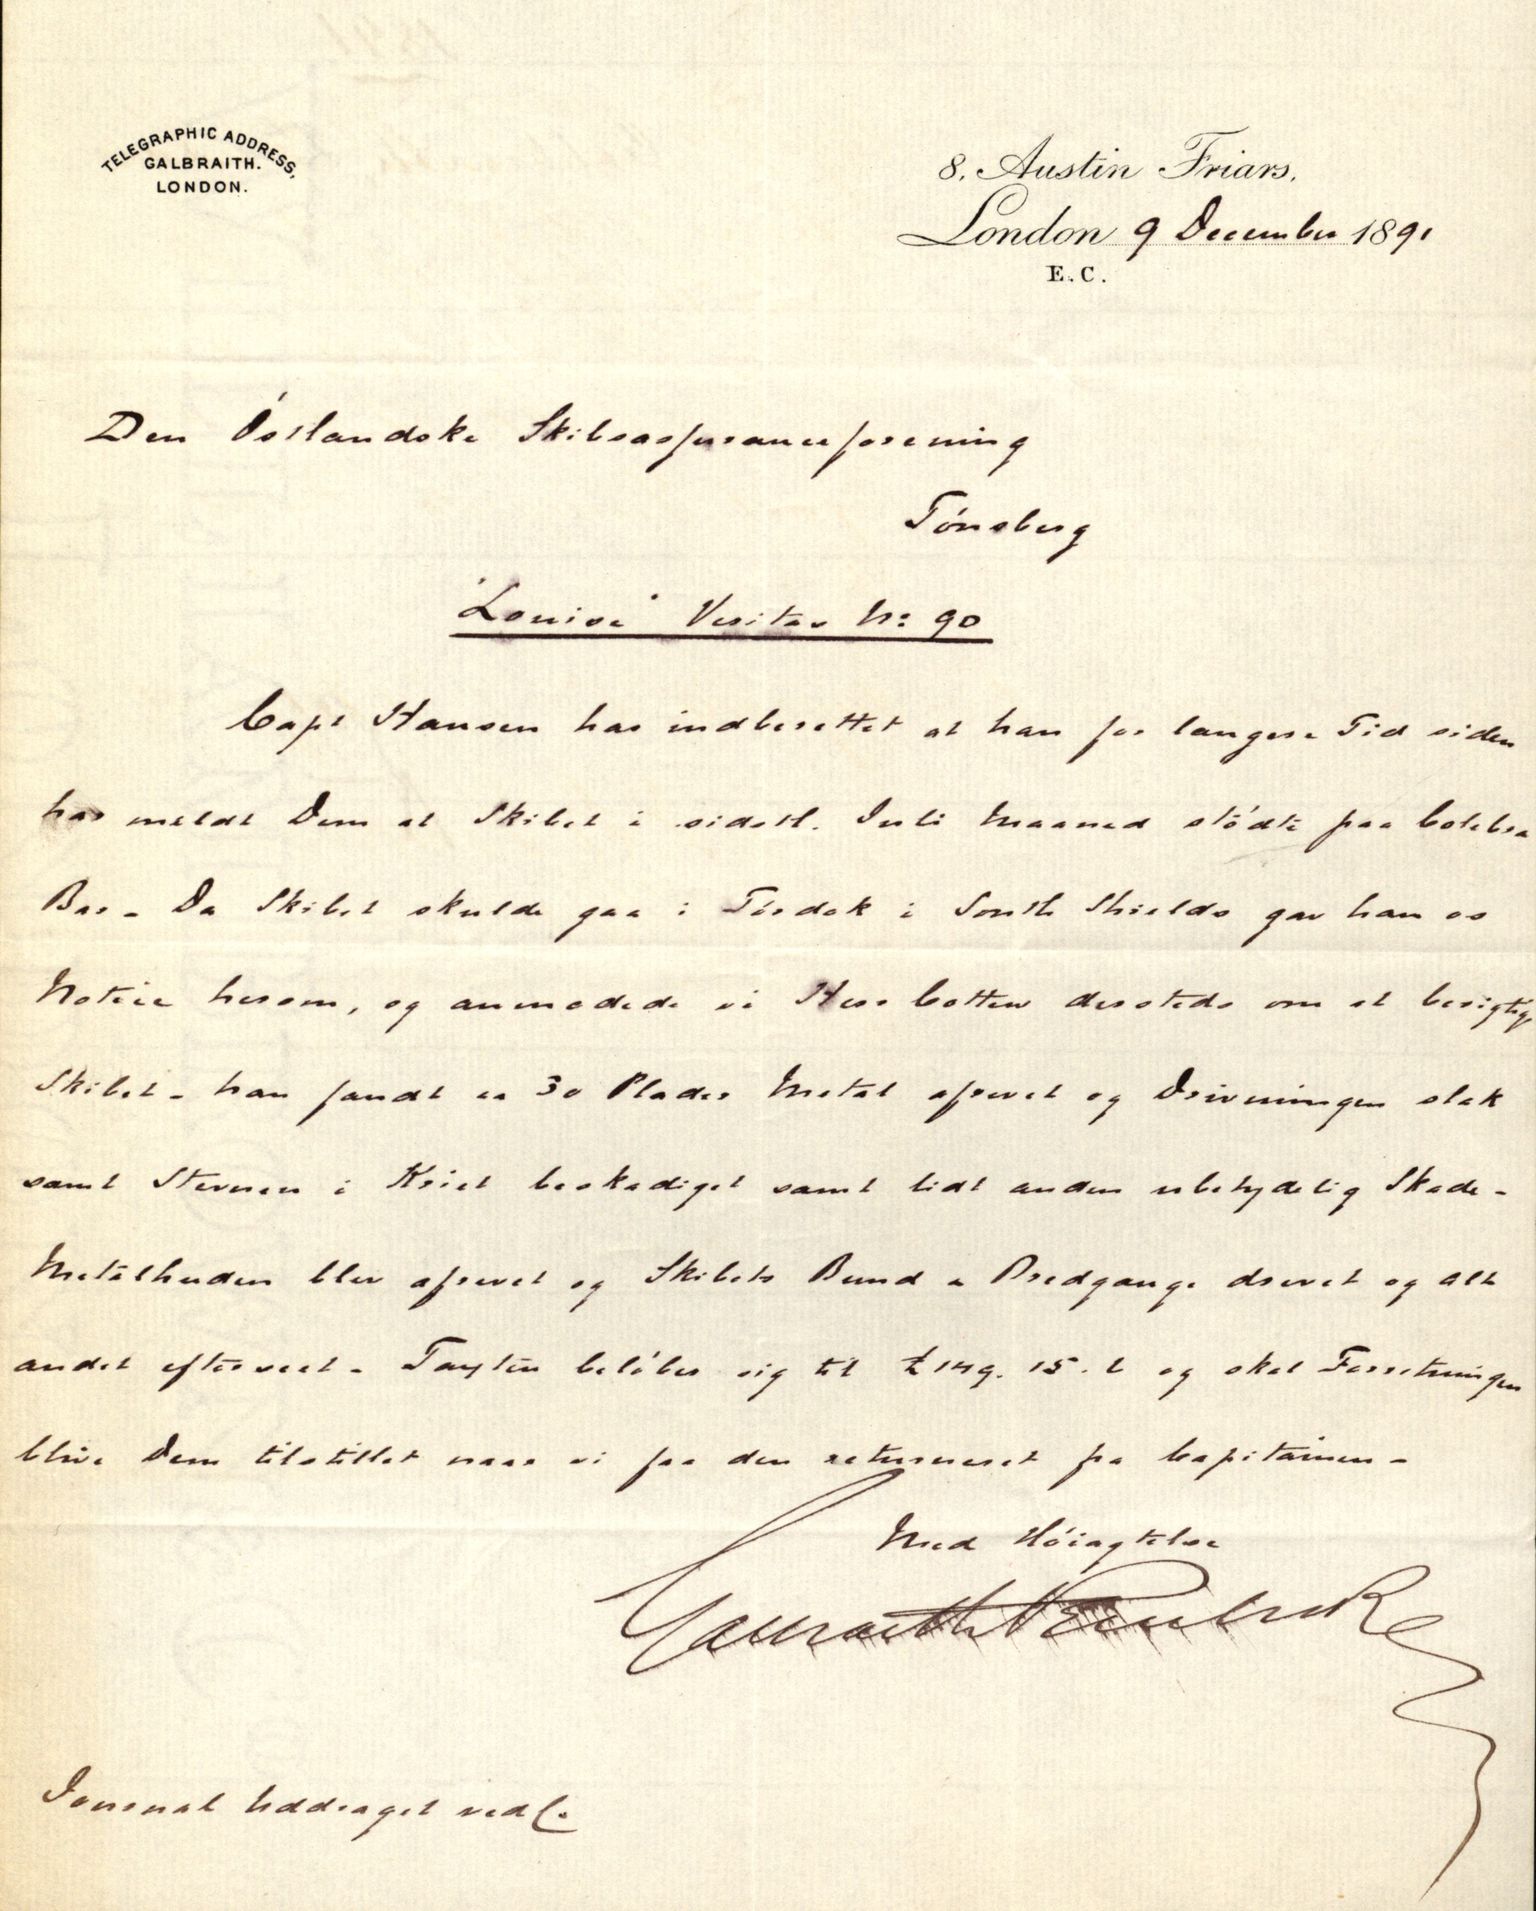 TELEGRAPHIC ADDRESS,
GALBRAITH.
LONDON.
8, Austin Friars,
London 9 December 1891
E.C.
Den Östlandske Skibsassuranceforening
Tönsberg
"Louise" Veritas No: 90
Capt Hansen har indberettet at han for længere Tid siden
har meldt Dem at Skibet i sidstl. Juli Maaned stödte paa
Bar - Da Skibet skulde gaa i Tördok i South Shields gav han os
Notice herom, og anmodede vi Herr Cotten dersteds om at besigtige
Skibet - han fandt ca 30 Plader Metal afrevet og Drivningen slak
samt Stevnen i Kriet beskadiget samt lidt anden ubetydelig Skade -
Metalhuden blev afrevet og Skibets Bund & Bredgange drevet og alt
andet efterseet - Taxten belöber sig til £149. 15. 6 og skal Forretningen
blive Dem tilstillet naar vi faa den returneret fra Capitainen -
Med Höiagtelse
Galbraith Pembroke
Journal Uddraget vedl.